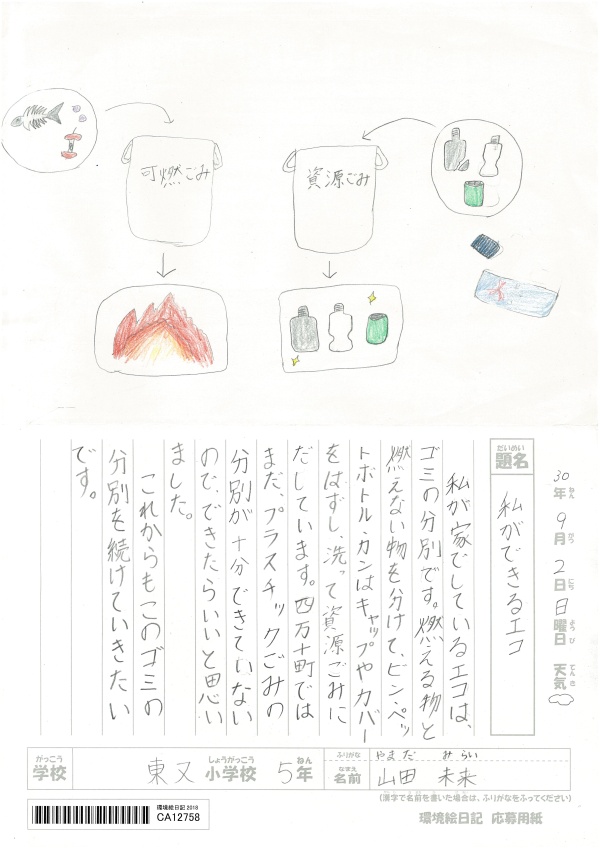 可燃ごみ
資源ごみ
30年ねん9月がつ2日にち日曜日ようび 天気てんき
題名だいめい
私ができるエコ
私が家でしているエコは、
ゴミの分別です。燃える物と
燃えない物を分けて、ビン・ペッ
トボトル・カンはキャップやカバー
をはずし、洗って資源ごみに
だしています。四万十町では
まだ、プラスチックごみの
分別が十分できていない
ので、できたらいいと思い
ました。
これからもこのゴミの
分別を続けていきたい
です。
がっこう しょうがっこう ねん
学校 東又 小学校 5年
ふりがな やまだ みらい
なまえ
名前 山田 未来
(漢字で名前を書いた場合は、ふりがなをふってください)
環境絵日記 2018
CA12758
環境絵日記 応募用紙